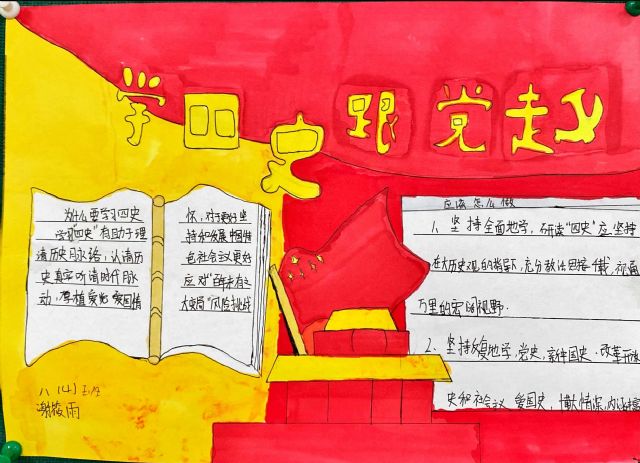 学四史跟党走
为什么要学习四史
学习"四史"有助于理
清历史脉络,认清历
史真实听清时代脉
动,厚植爱党爱国情
怀,对于更好坚
持和发展中国特
色社会议更好
应对"百年未有之
大变局"风险挑战
八(4)班
应该怎么做
1、坚持全面地学,研读"四史"应坚持
在大历史观的指导下,充分
万里的宏阔视野.
2、坚持反复地学,党史,新中国史.改革开放
史和社会议 爱国史,